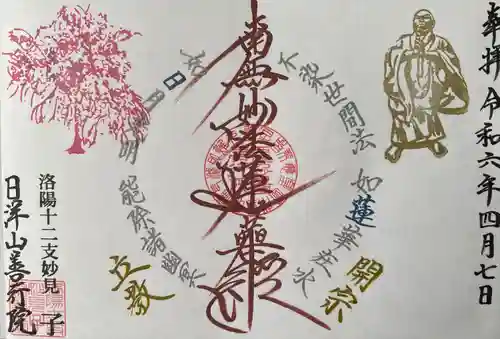 奉拝 令和六年四月七日
開宗
不染世間法 如蓮華在水
南無妙法蓮華経
如日月光明 能除諸幽冥
立教
洛陽十二支妙見 子
日洋山善行院